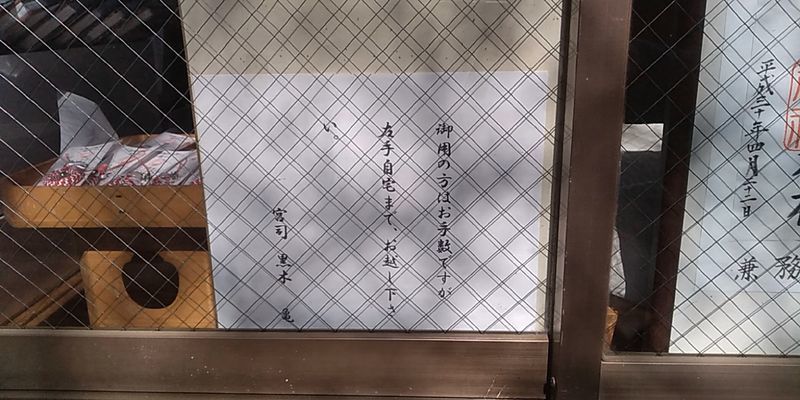 御用の方はお手数ですが
左手自宅まで、お越し下さ
い。
宮司 黒木 亀
平成三十年四月二十二日
兼務